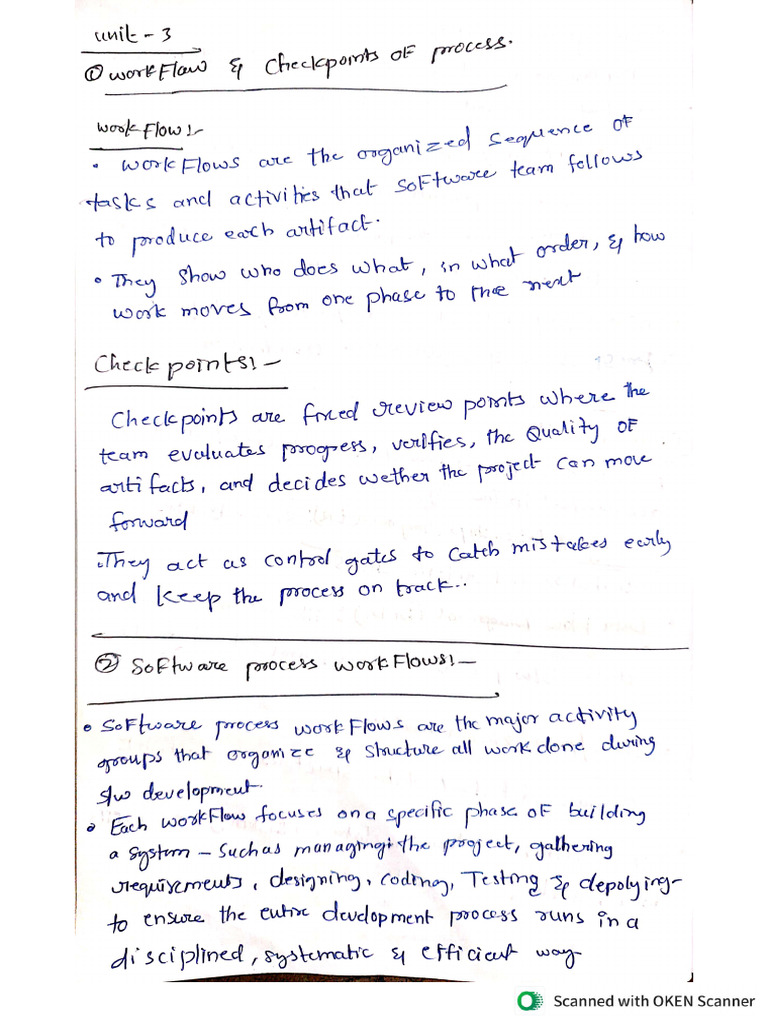 unit - 3
① workFlow & Checkpoints OF process.
workFlow:-
• workFlows are the organized sequence OF
tasks and activities that software team follows
to produce each artifact.
• They show who does what, in what order, & how
work moves from one phase to the next
Checkpoints:-
Checkpoints are fixed review points where the
team evaluates progress, verifies, the Quality OF
artifacts, and decides wether the project can move
forward
They act as control gates to catch mistakes early
and keep the process on track..
② Software process workFlows:-
• Software process workFlows are the major activity
groups that organize & structure all work done during
s/w development.
• Each workFlow focuses on a specific phase OF building
a system - such as managing the project, gathering
requirements, designing, coding, Testing & depolying-
to ensure the entire development process runs in a
disciplined, systematic & efficient way-
Scanned with OKEN Scanner